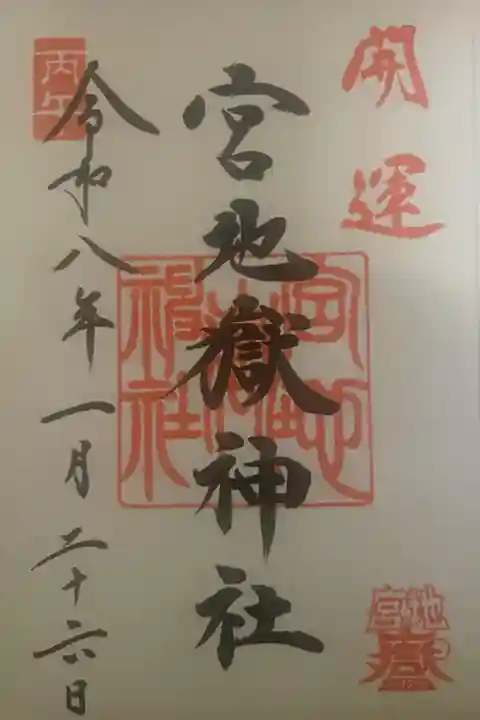 開運
宮地嶽神社
宮地嶽神社
令和八年一月二十六日
丙午
宮地嶽